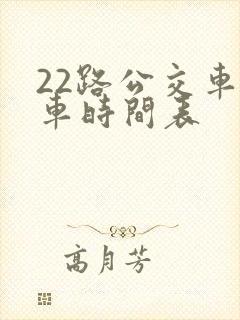 22路公交車
車時間表
高月芳